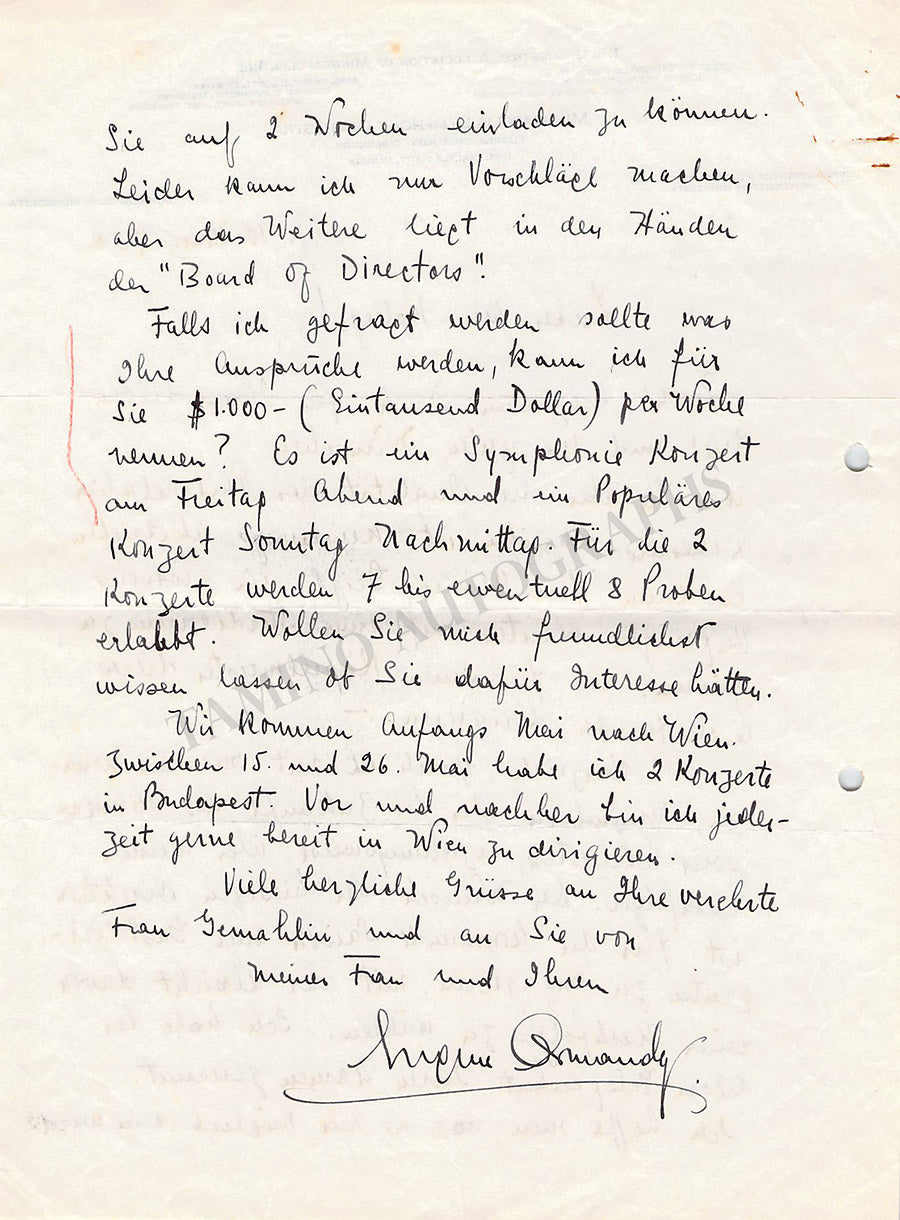 Sie auf 2 Wochen einladen zu können.
Leider kann ich nur Vorschläge machen,
aber das Weitere liegt in den Händen
der "Board of Directors".
Falls ich gefragt werden sollte was
Ihre Ansprüche werden, kann ich für
Sie $1.000- (Eintausend Dollar) per Woche
nennen? Es ist ein Symphonie Konzert
am Freitag Abend und ein Populäres
Konzert Sonntag Nachmittag. Für die 2
Konzerte werden 7 bis eventuell 8 Proben
erlaubt. Wollen Sie mich freundlichst
wissen lassen ob Sie dafür Interesse hätten.
Wir kommen Anfangs Mai nach Wien.
Zwischen 15. und 26. Mai habe ich 2 Konzerte
in Budapest. Vor und nachher bin ich jeder-
zeit gerne bereit in Wien zu dirigieren.
Viele herzliche Grüsse an Ihre verehrte
Frau Gemahlin und an Sie von
meiner Frau und Ihren
Eugene Ormandy.
TAMINO AUTOGRAPHS